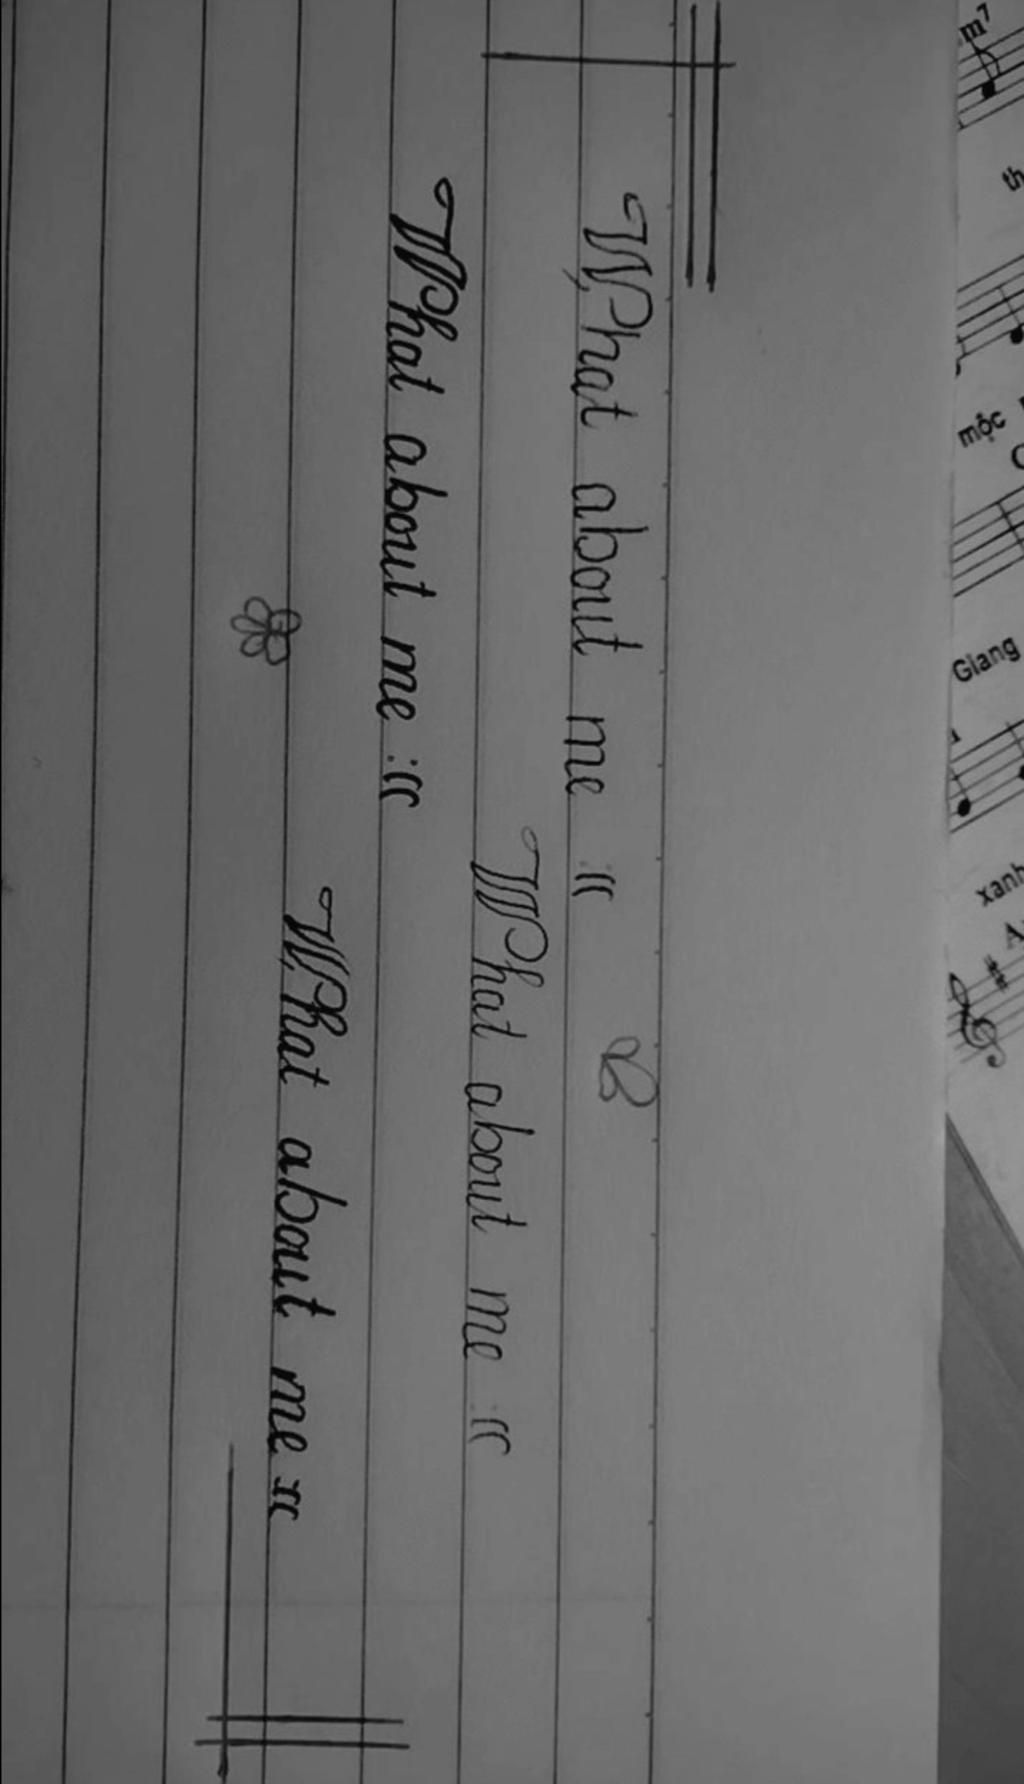 What about me :((
What about me :((
What about me :((
What about me :((
m7
th
mộc
Giang
xanh